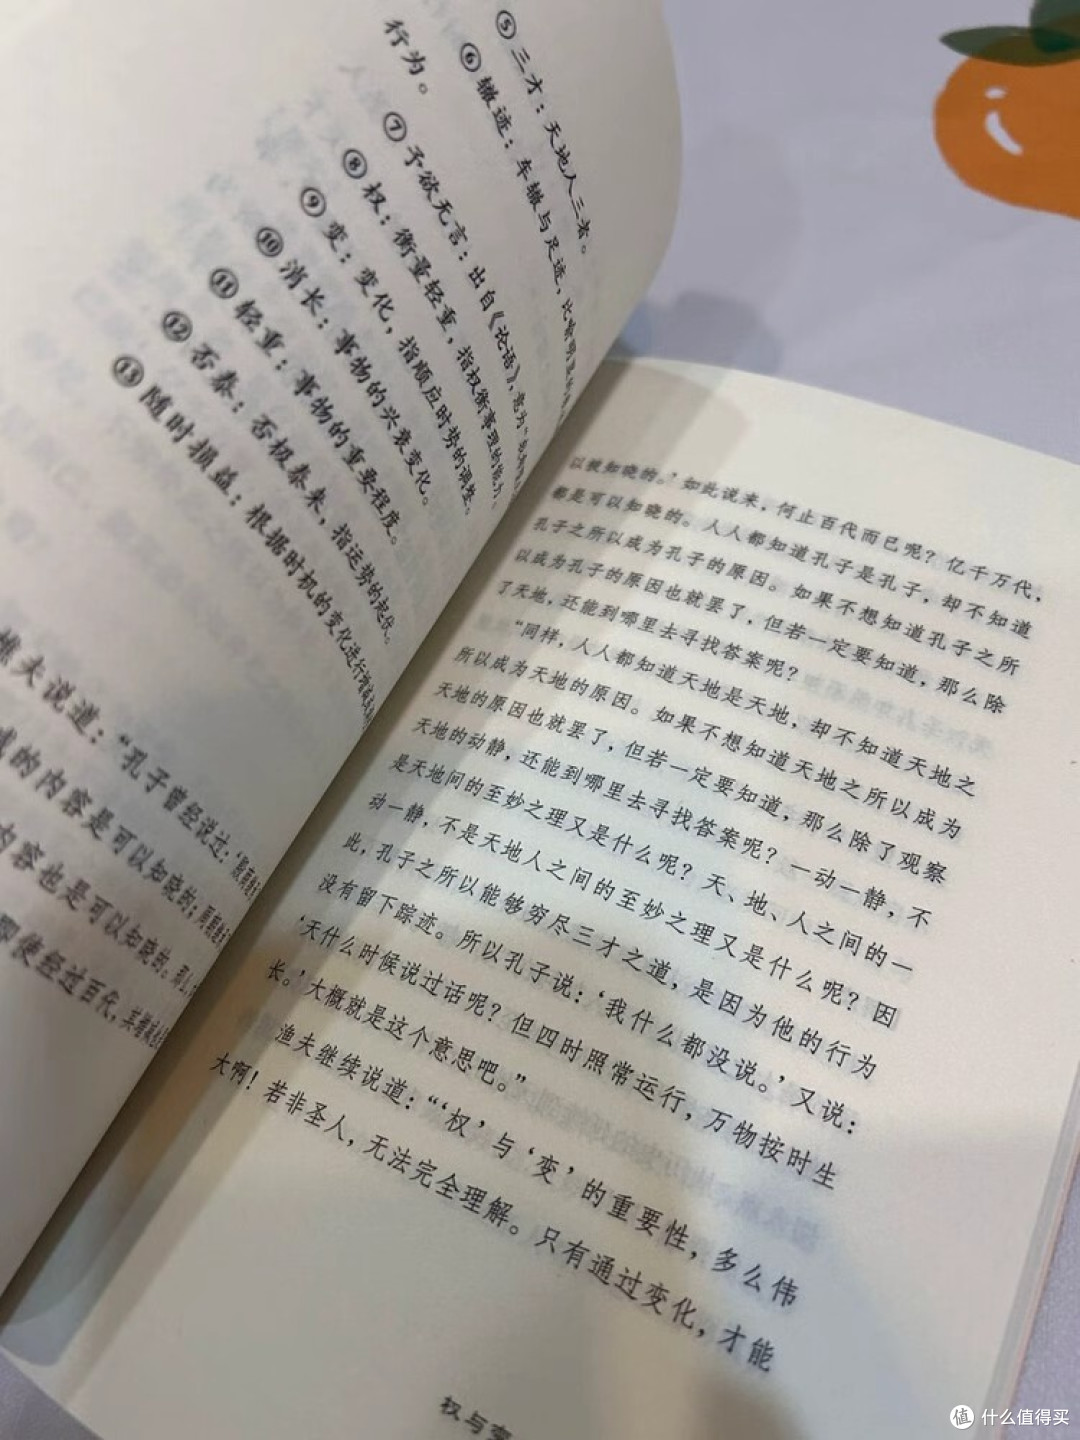 ⑤ 三才：天地人三者。
⑥ 辙迹：车辙与足迹，比喻明显的
行为。
⑦ 予欲无言：出自《论语》，意为“我
⑧ 权：衡量轻重，指权衡事理的能力。
⑨ 变：变化，指顺应时势的调整。
⑩ 消长：事物的兴衰变化。
⑪ 轻重：事物的重要程度。
⑫ 否泰：否极泰来，指运势的起伏。
⑬ 随时损益：根据时机的变化进行增减
樵夫说道：“孔子曾经说过：
的内容是可以知晓的；
内容也是可以知晓的；那
即使经过百代，其
以被知晓的。’如此说来，何止百代而已呢？亿千万代，
都是可以知晓的。人人都知道孔子是孔子，却不知道
孔子之所以成为孔子的原因。如果不想知道孔子之所
以成为孔子的原因也就罢了，但若一定要知道，那么除
了天地，还能到哪里去寻找答案呢？
“同样，人人都知道天地是天地，却不知道天地之
所以成为天地的原因。如果不想知道天地之所以成为
天地的原因也就罢了，但若一定要知道，那么除了观察
天地的动静，还能到哪里去寻找答案呢？一动一静，不
是天地间的至妙之理又是什么呢？天、地、人之间的一
动一静，不是天地人之间的至妙之理又是什么呢？因
此，孔子之所以能够穷尽三才之道，是因为他的行为
没有留下踪迹。所以孔子说：‘我什么都没说。’又说：
‘天什么时候说过话呢？但四时照常运行，万物按时生
长。’大概就是这个意思吧。”
渔夫继续说道：“‘权’与‘变’的重要性，多么伟
大啊！若非圣人，无法完全理解。只有通过变化，才能
权与变
值 什么值得买